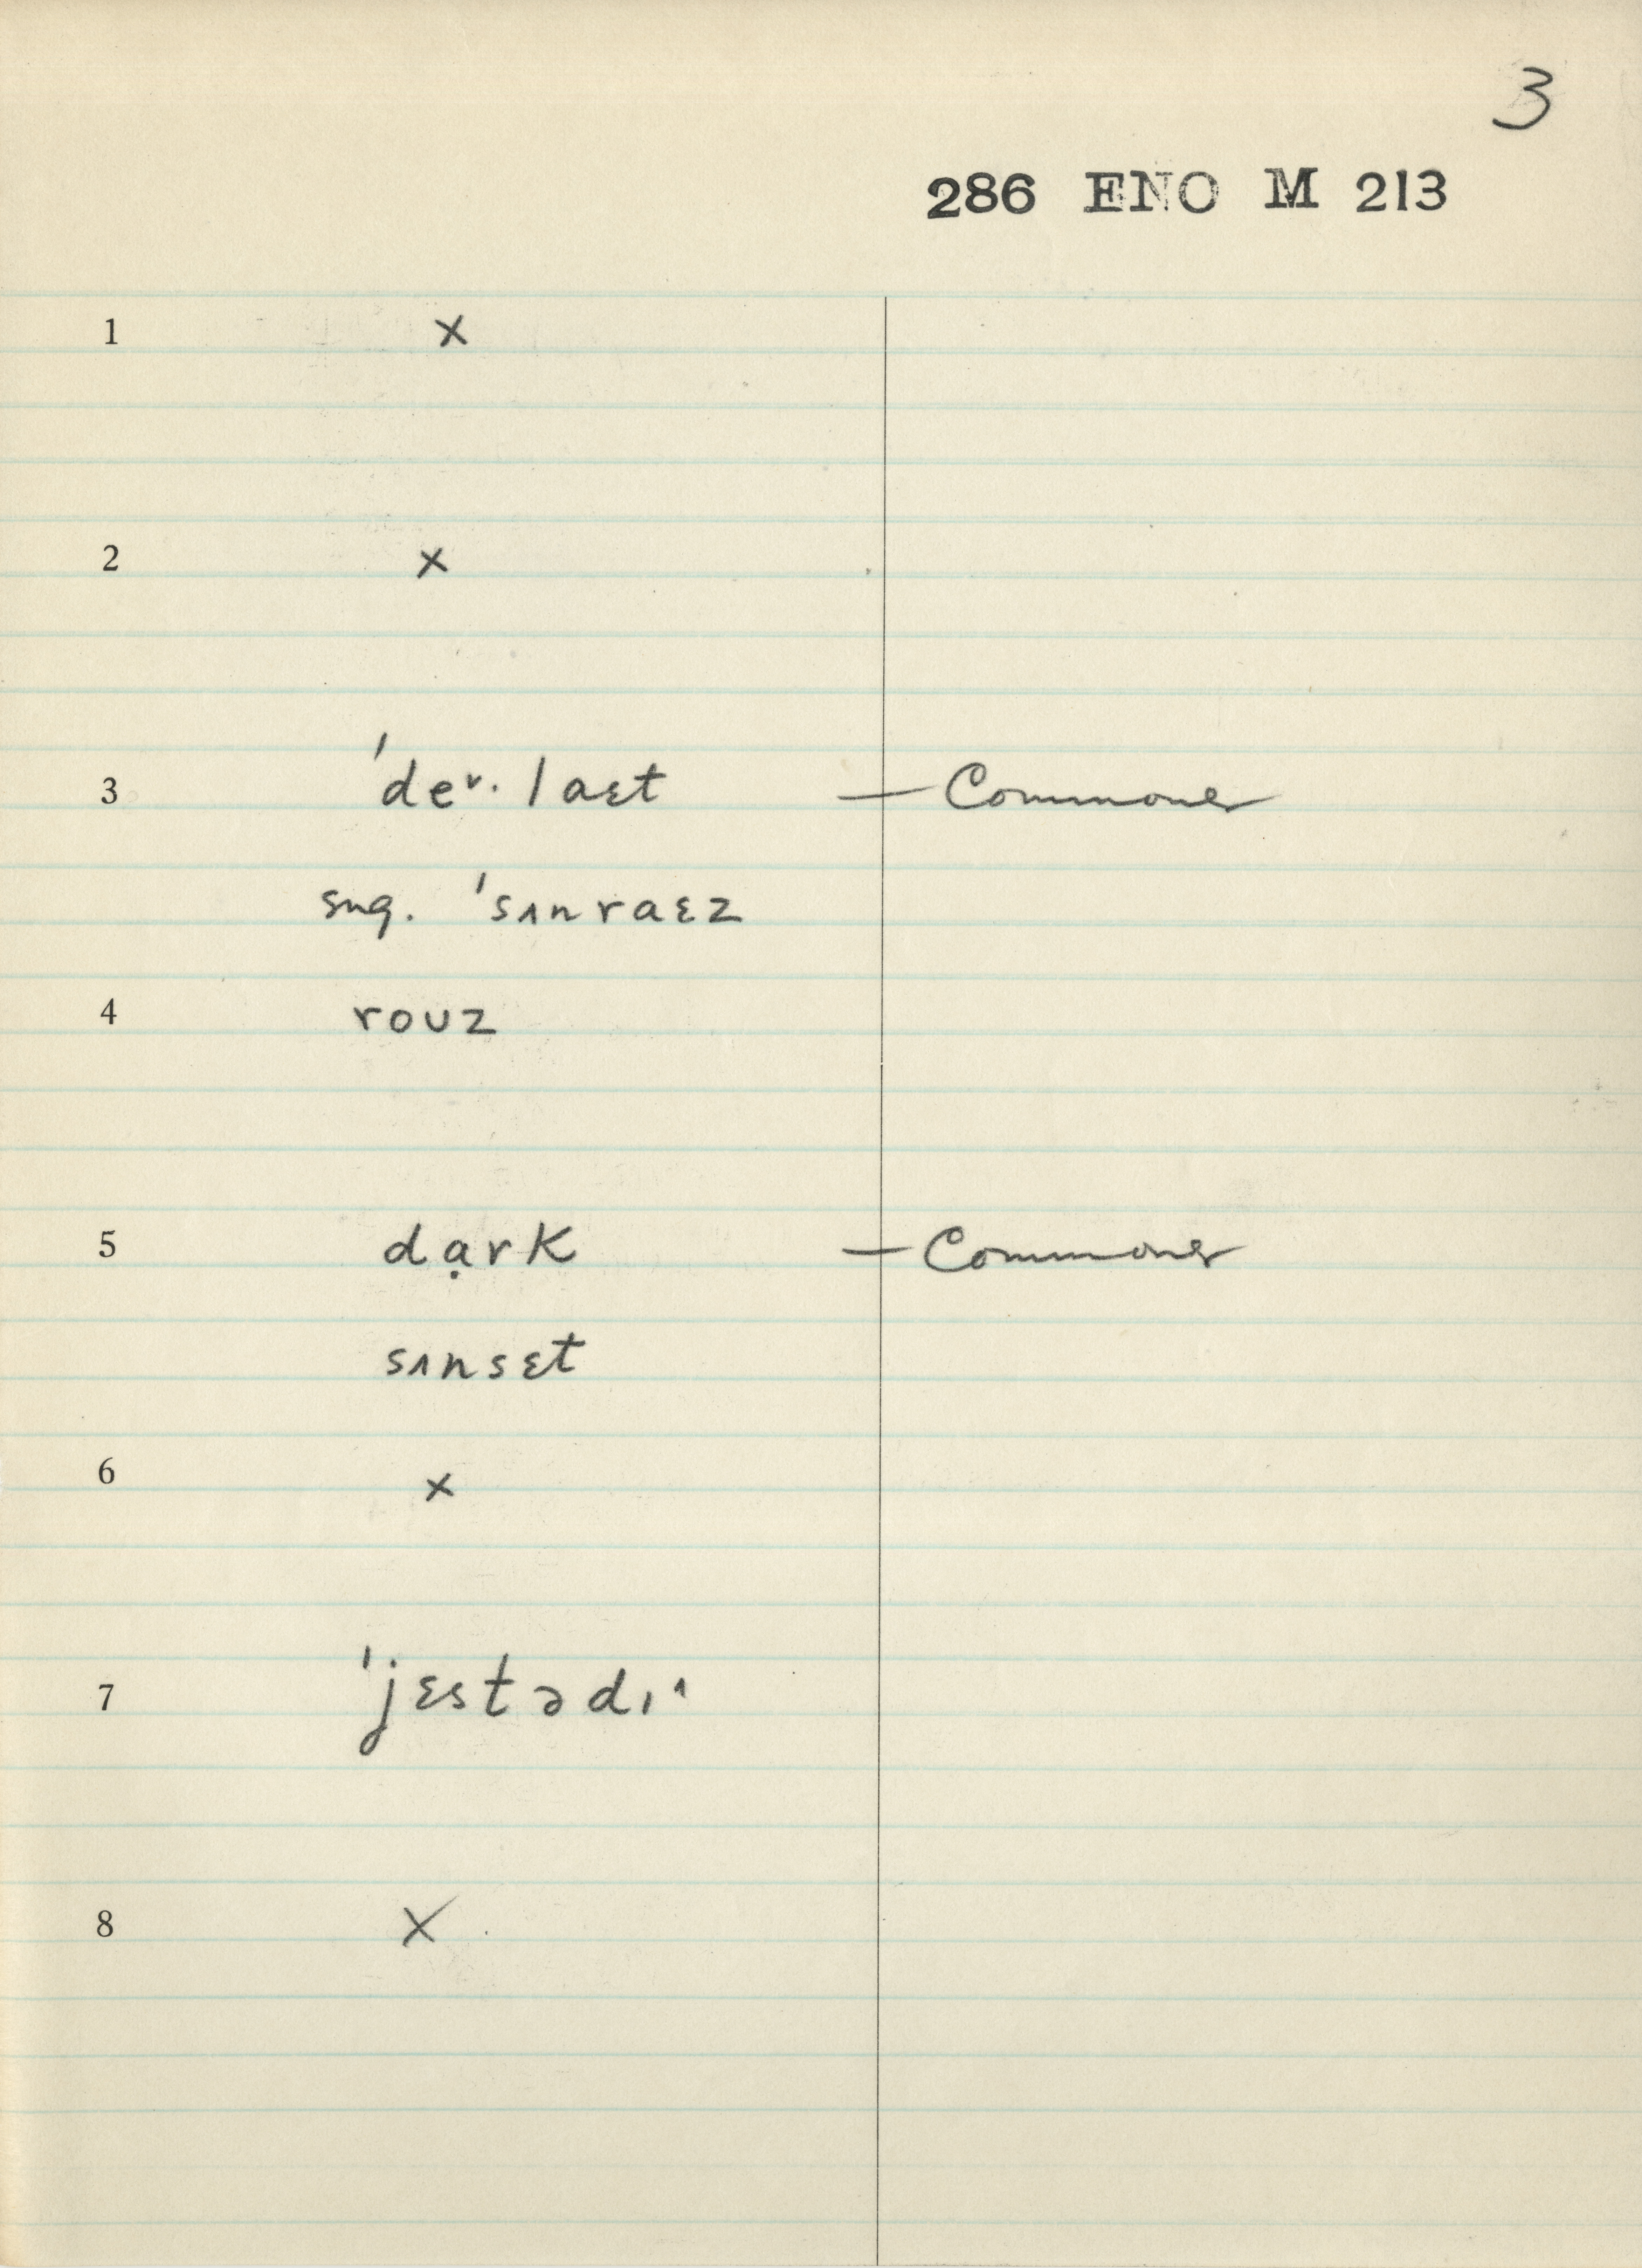 3
286 ENO M 213
1 x
2 x
3 'deᵛ·laɛt — Commoner
sug. 'sɪnraɛz
4 rouz
5 dạrk — Commoner
sɪnsɛt
6 x
7 'jɛstədɪ^
8 x